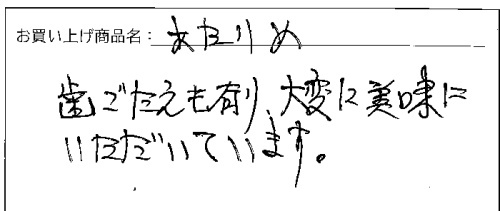 お買い上げ商品名：あたりめ
歯ごたえも有り、大変に美味に
いただいています。